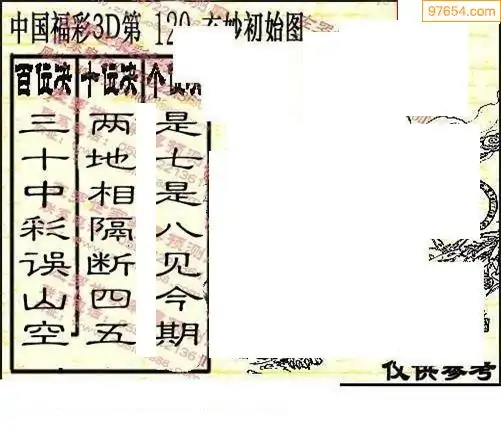 97654.com
中国福彩3D第 120 玄妙初始图
百位决 十位决 个位决
三十中彩误山空
两地相隔断四五
是七是八见今期
仅供参考